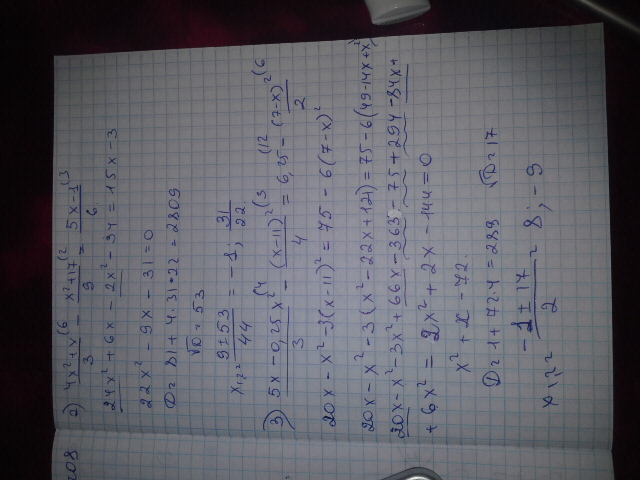 208
2) (4x²+x)/3 (6 - (x²+17)/9 (2 = (5x-1)/6 (3
24x²+6x-2x²-34=15x-3
22x²-9x-31=0
D=81+4·31·22=2809
√D=53
x₁,₂= (9±53)/44 = -1; 31/22
3) (5x-0,25x²)/3 (4 - (x-11)²/4 (3 = 6,25 (12 - (7-x)²/2 (6
20x-x²-3(x-11)²=75-6(7-x)²
20x-x²-3(x²-22x+121)=75-6(49-14x+x²)
20x-x²-3x²+66x-363-75+294-84x+
+6x²=2x²+2x-144=0
x²+x-72.
D=1+72·4=289 √D=17
x₁,₂= (-1±17)/2 = 8; -9